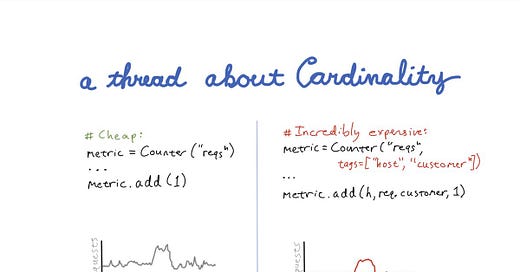 a thread about Cardinality
# Cheap:
metric = Counter("reqs")
...
metric.add(1)
# Incredibly expensive:
metric = Counter("reqs",
tags=["host", "customer"])
...
metric.add(h, req.customer, 1)